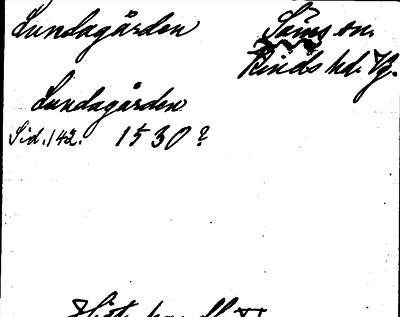 Lundagården
Säms sn.
Kinds hd. Vg.
Lundagården
Sid. 142. 1530?